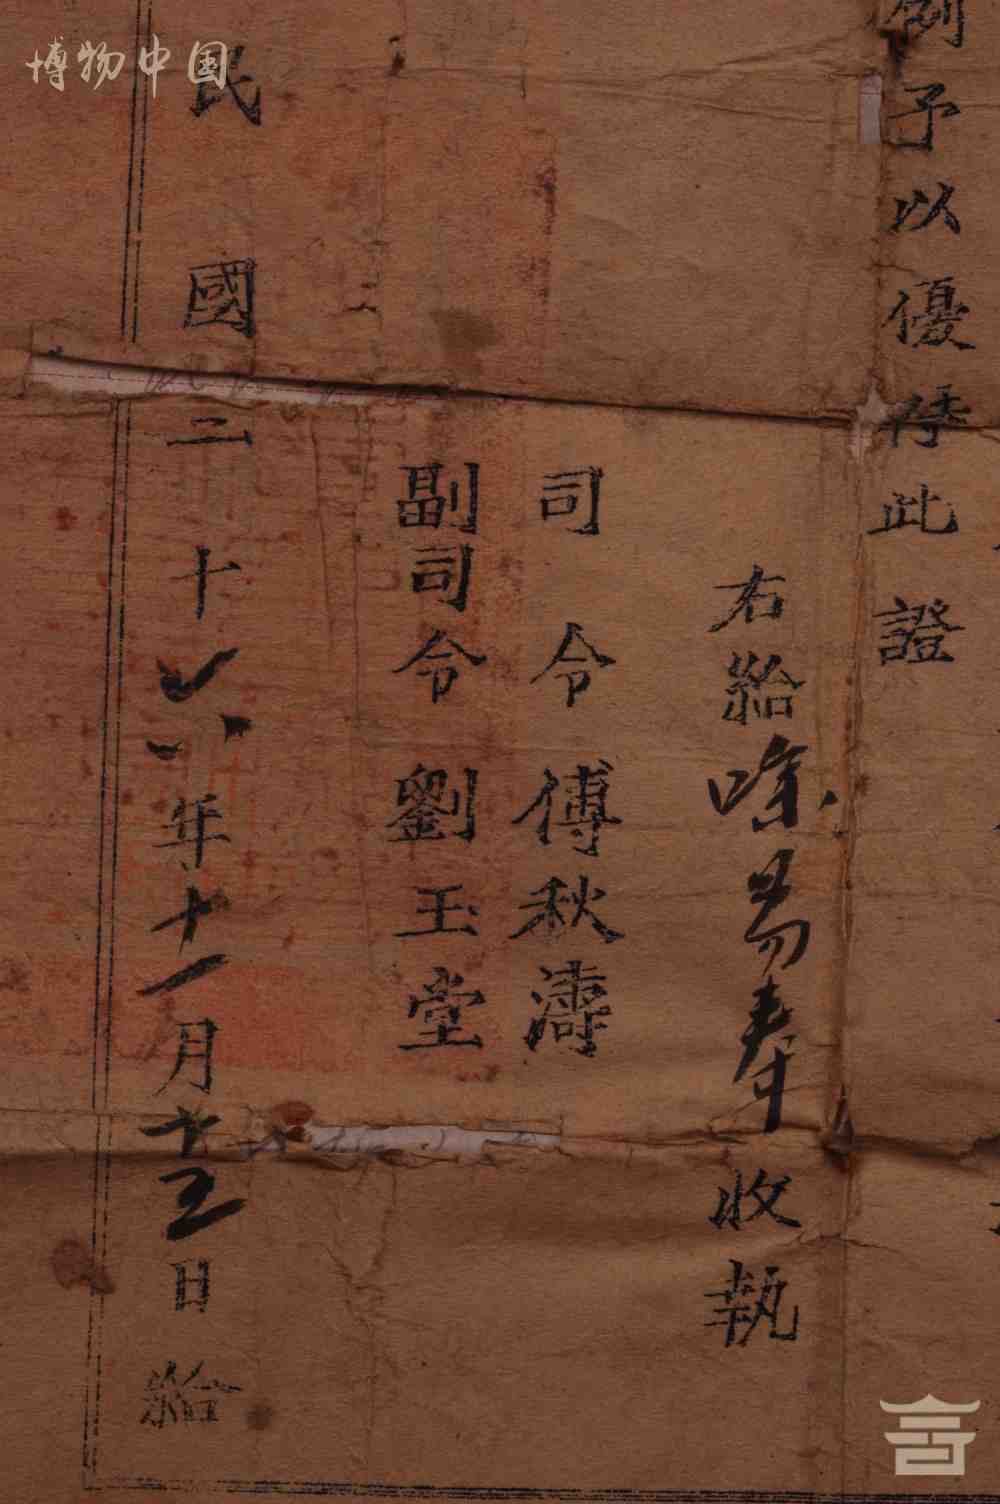 博物中国
例予以優待此證
右給喻易奉收執
司令傅秋濤
副司令劉玉堂
民國二十六年十一月十五日給